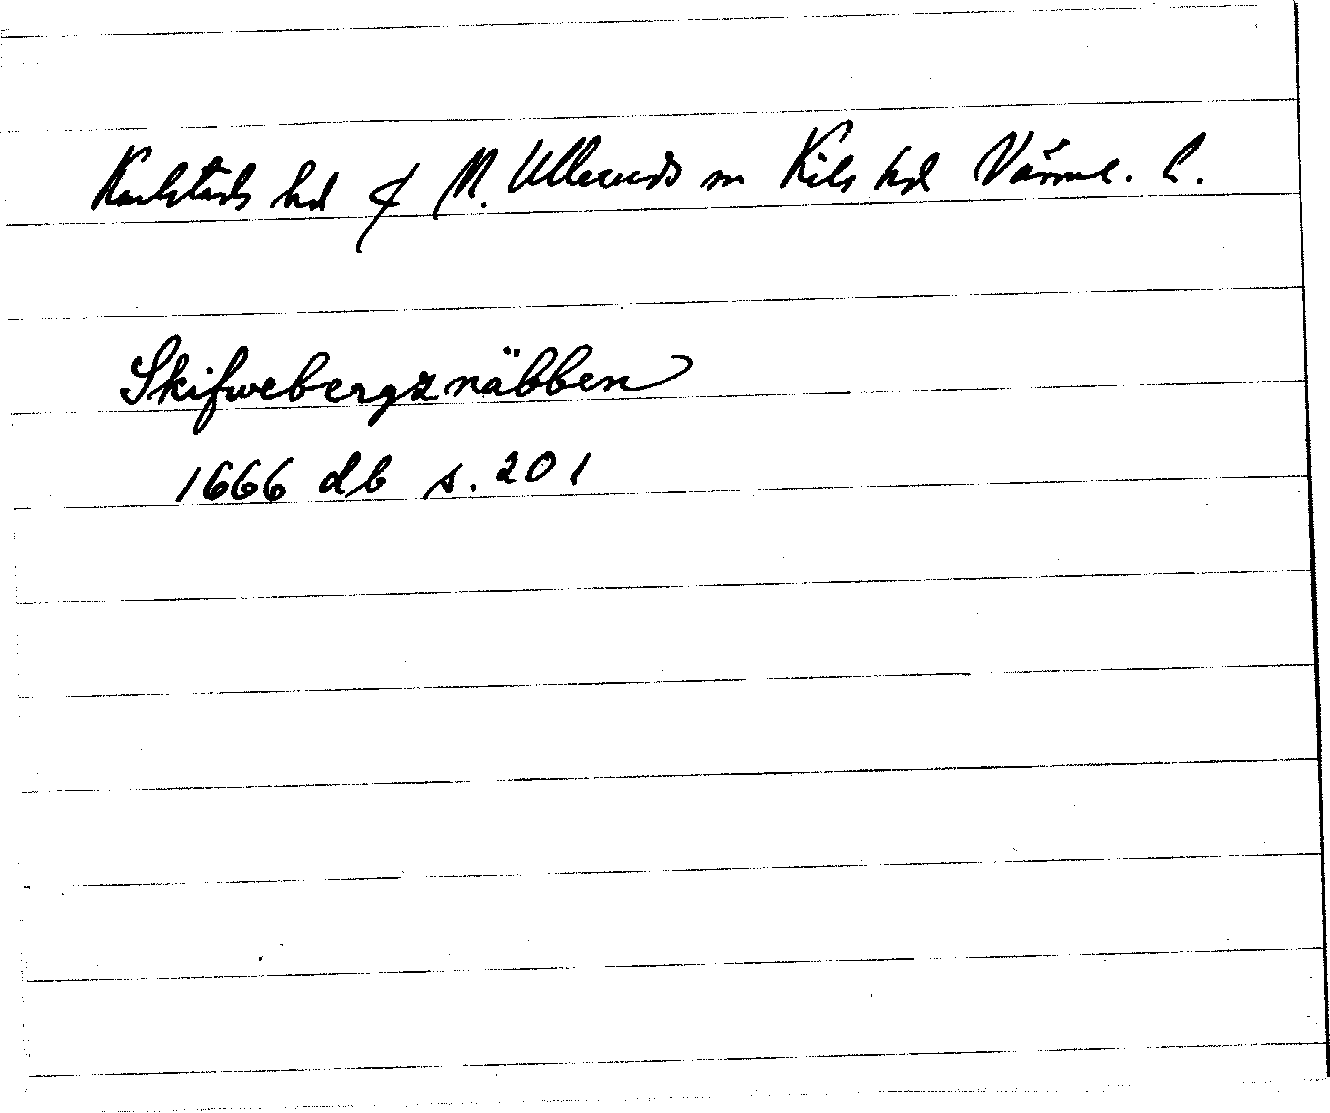 Karlstads hd & N. Ulleruds sn Kils hd Värml. l.
Skifwebergznäbben
1666 db s. 201